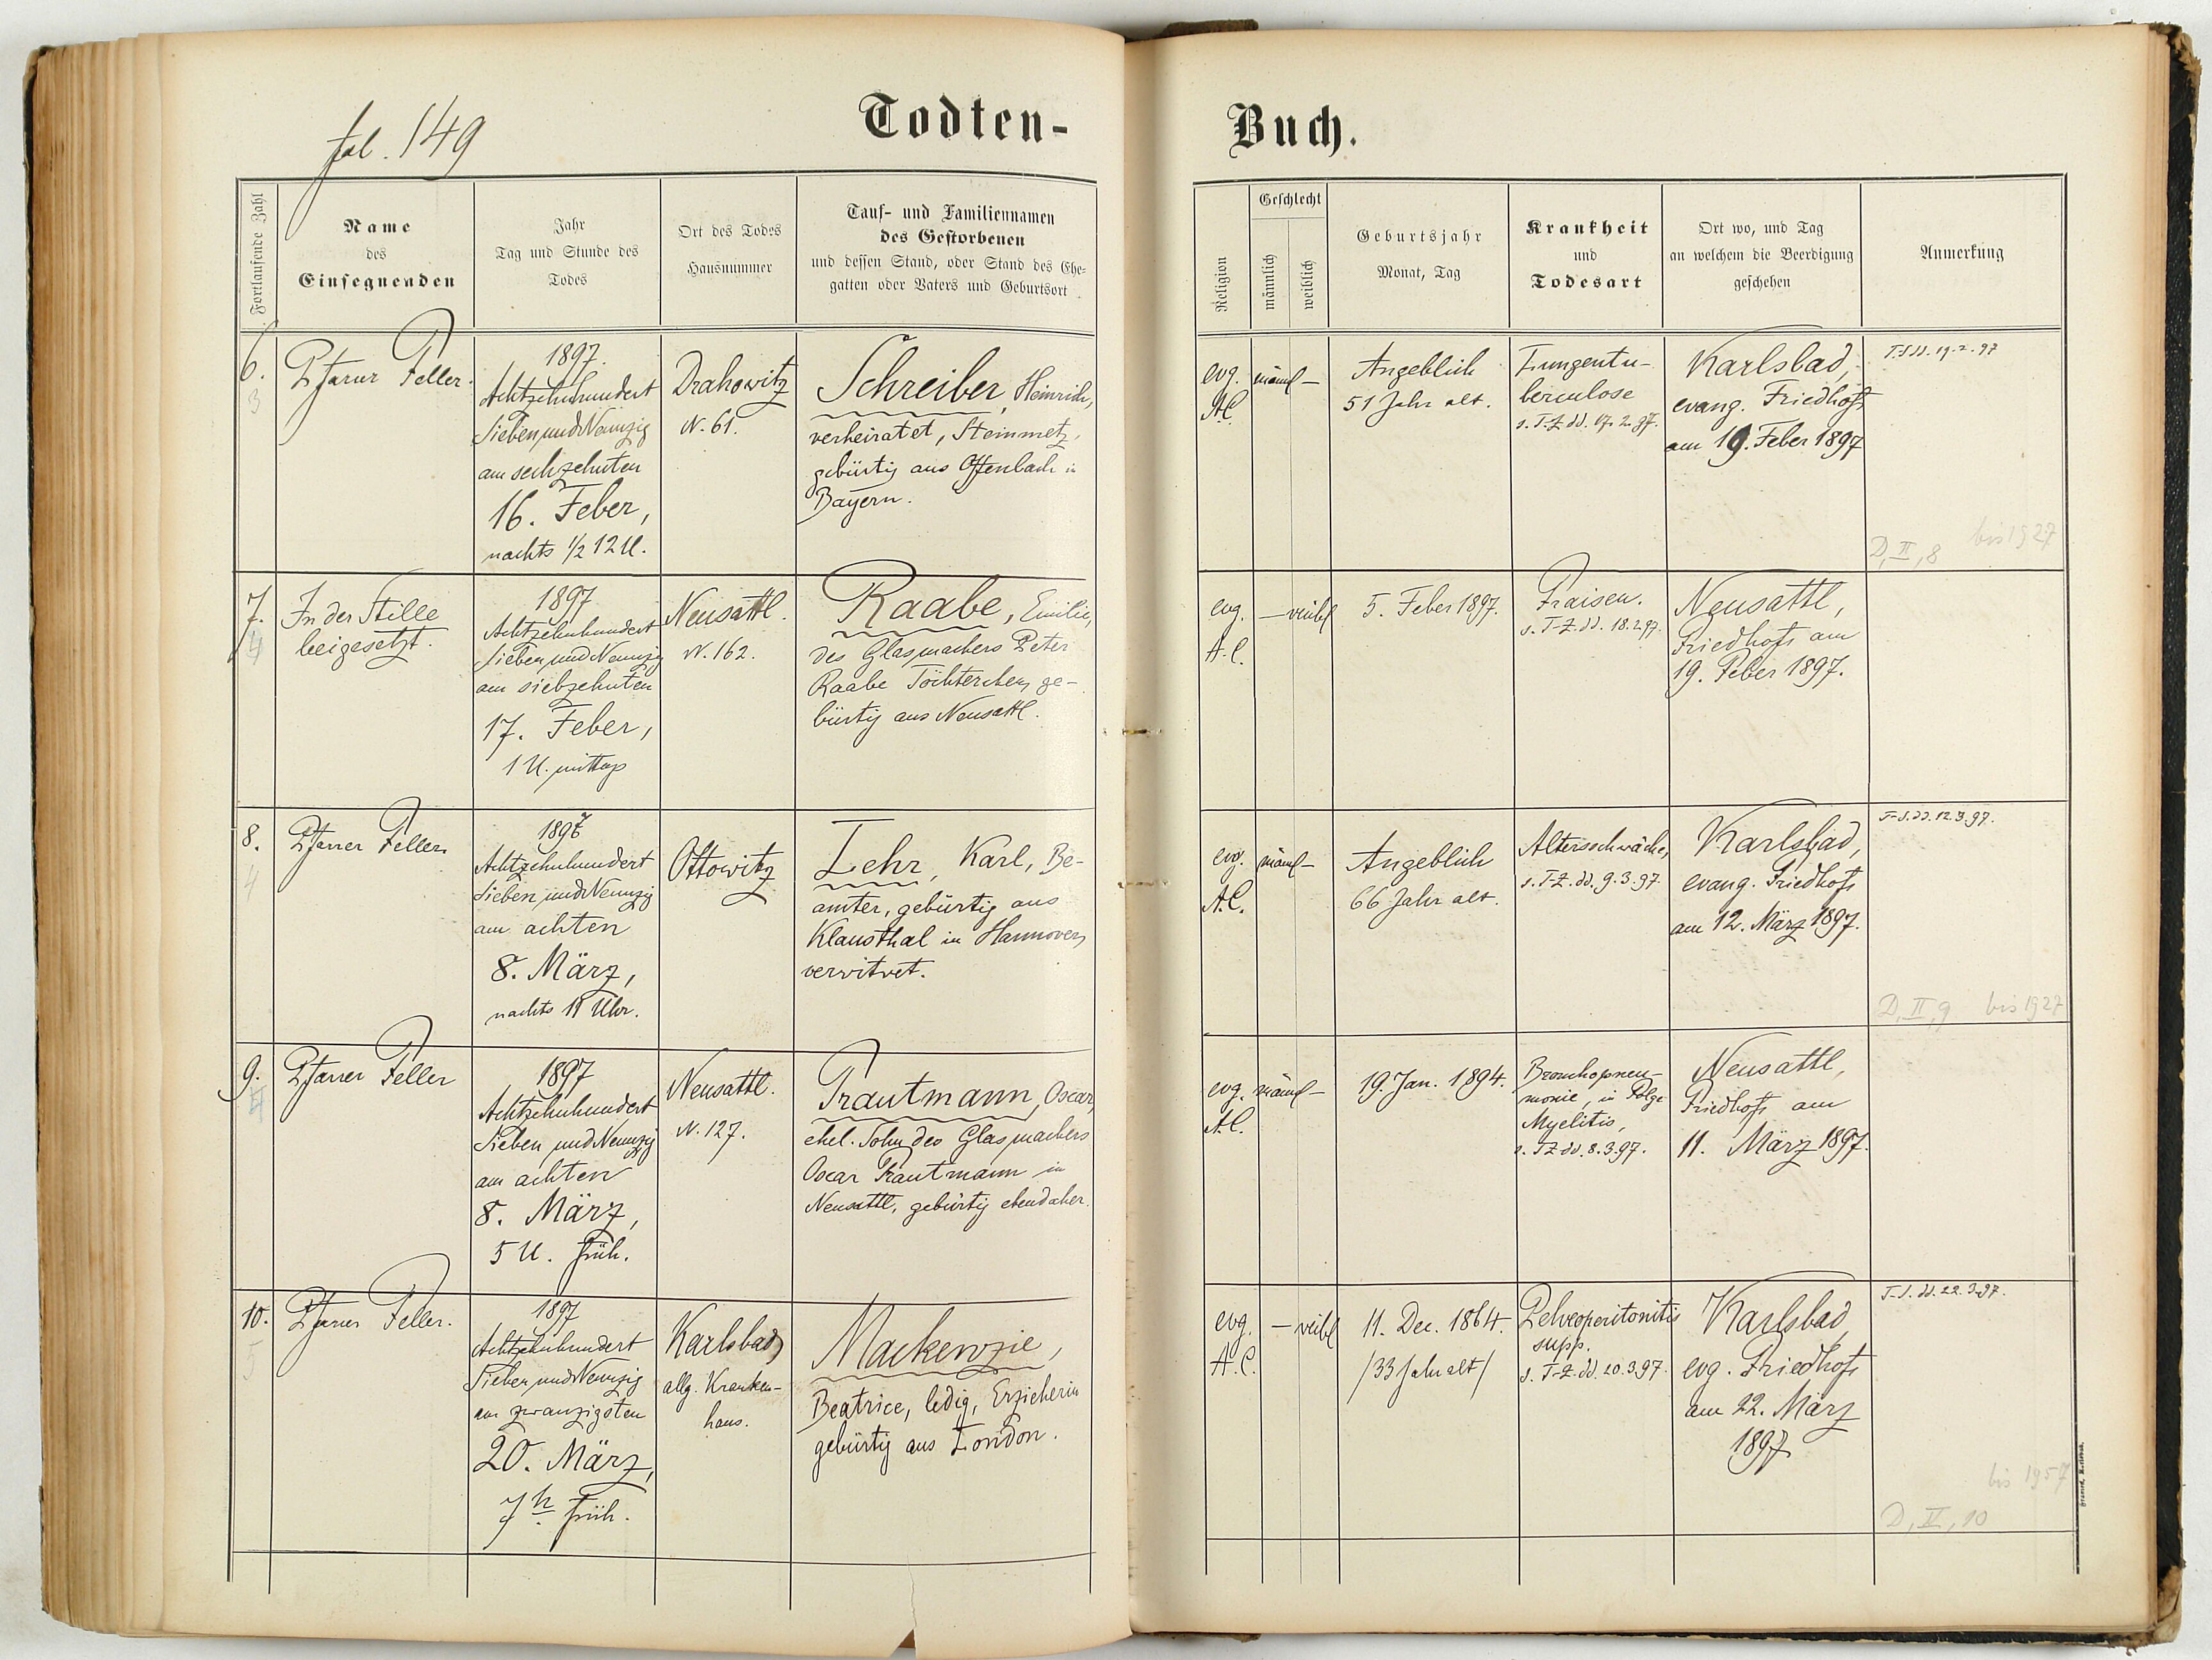 fol. 149
Todten-
Fortlaufende Zahl
Name
des
Einsegnenden
Jahr
Tag und Stunde des
Todes
Ort des Todes
Hausnummer
Tauf- und Familiennamen
des Gestorbenen
und dessen Stand, oder Stand des Ehe-
gatten oder Vaters und Geburtsort
6.
3
Pfarrer Feller.
1897.
Achtzehnhundert
Sieben und Neunzig
am sechzehnten
16. Feber,
nachts 1/2 12 U.
Drahowitz
N. 61.
Schreiber, Heinrich,
verheiratet, Steinmetz,
gebürtig aus Offenbach in
Bayern.
7.
4
In der Stille
beigesetzt.
1897
Achtzehnhundert
Sieben und Neunzig
am siebzehnten
17. Feber,
1 U. mittags
Neusattl.
N. 162.
Raabe, Emilie,
des Glasmachers Peter
Raabe Töchterchen, ge-
bürtig aus Neusattl.
8.
4
Pfarrer Feller
1897
Achtzehnhundert
Sieben und Neunzig
am achten
8. März,
nachts 11 Uhr.
Ottowitz
Lehr, Karl, Be-
amter, gebürtig aus
Klausthal in Hannover,
verwitwet.
9.
Pfarrer Feller
1897
Achtzehnhundert
Sieben und Neunzig
am achten
8. März,
5 U. früh.
Neusattl.
N. 127.
Trautmann, Oscar,
ehel. Sohn des Glasmachers
Oscar Trautmann in
Neusattl, gebürtig ebendaher.
10.
5
Pfarrer Feller.
1897
Achtzehnhundert
Sieben und Neunzig
am zwanzigsten
20. März,
7 h früh.
Karlsbad,
allg. Kranken-
haus.
Mackenzie,
Beatrice, ledig, Erzieherin
gebürtig aus London.
Buch.
Religion
Geschlecht
männlich
weiblich
Geburtsjahr
Monat, Tag
Krankheit
und
Todesart
Ort wo, und Tag
an welchem die Beerdigung
geschehen
Anmerkung
evg.
A.C.
männl –
Angeblich
51 Jahr alt.
Lungentu-
berculose
s. T-Z. dd. 17. 2. 97.
Karlsbad,
evang. Friedhof
am 19. Feber 1897
T-S. dd. 19. 2. 97
bis 1927
D, II, 8
evg.
A.C.
– weibl
5. Feber 1897.
Fraisen.
s. T-Z. dd. 18. 2. 97.
Neusattl,
Friedhof am
19. Feber 1897.
evg.
A.C.
männl –
Angeblich
66 Jahr alt.
Altersschwäche,
s. T-Z. dd. 9. 3. 97
Karlsbad,
evang. Friedhof
am 12. März 1897.
T-S. dd. 12. 3. 97.
D, II, 9 bis 1927
evg.
A.C.
männl –
19. Jan. 1894.
Bronchopneu-
monie, in Folge
Myelitis,
s. T-Z dd. 8. 3. 97.
Neusattl,
Friedhof am
11. März 1897.
evg.
A.C.
– weibl
11. Dec. 1864.
/33 Jahr alt/
Pelveoperitonitis
supp.
s. T-Z. dd. 20. 3. 97.
Karlsbad
evg. Friedhof
am 22. März
1897
T-S. dd. 22. 3. 97.
bis 1957
D, II, 10